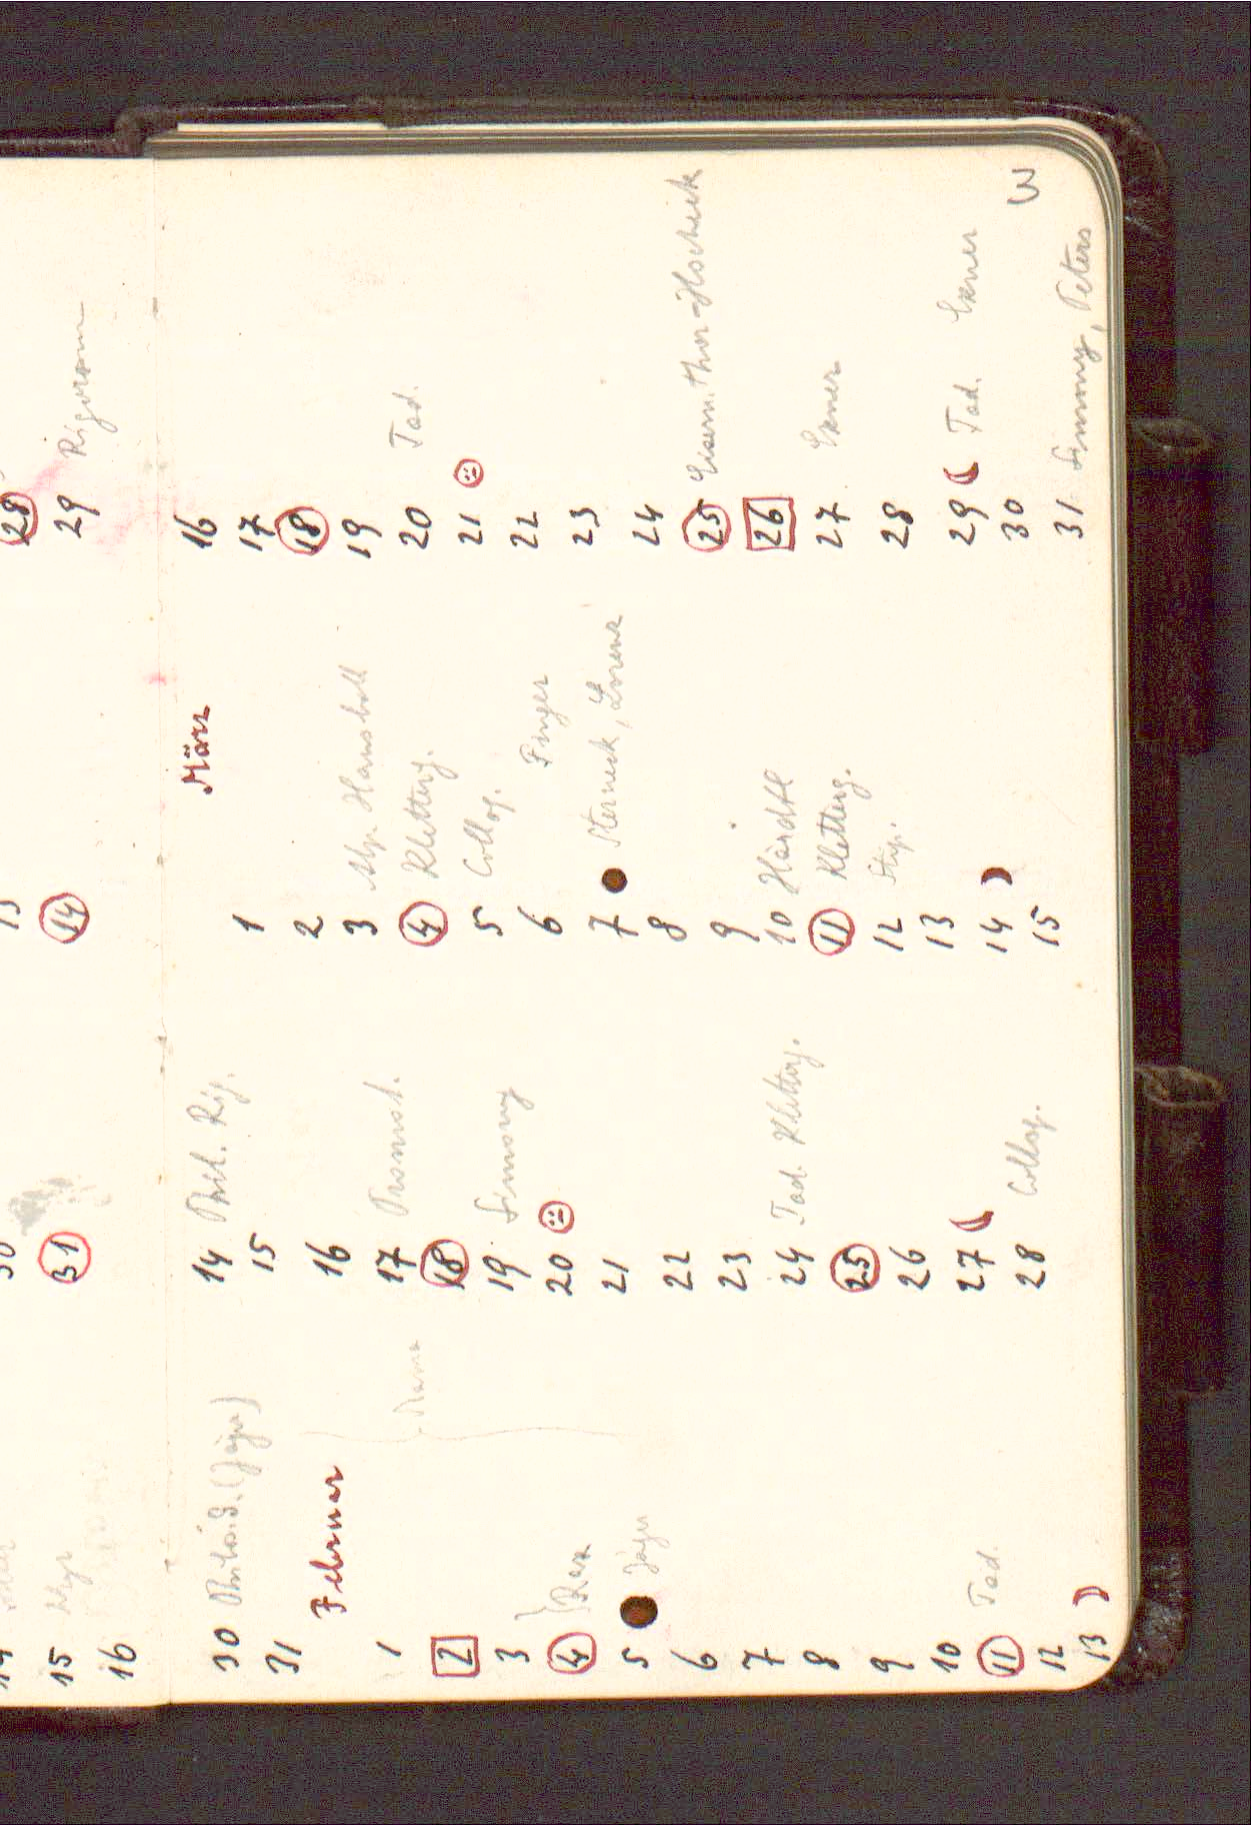 15
16
31
14
28
29 Rigorosum
30 Philos. (Jäger)
31
Februar
1
2
3
4 } Rax
5 Jäger
6
7
8
9
10
11 Tod.
12
13
Rama
14 Phil. Rig.
15
16
17 Promot.
18
19 Simony
20
21
22
23
24 Tod. Kletterg.
25
26
27
28 Colloq.
März
1
2
3 Alp. Hausball
4 Kletterg.
5 Colloq.
6 Finger
7 Sterneck, Lorenz
8
9
10 Härdtl
11 Kletterg.
12 Stip.
13
14
15
16
17
18
19
20 Tod.
21
22
23
24
25 Eisern. Thor-Hocheck
26
27 Exner
28
29 Tod. Exner
30
31 Simony, Peters
3